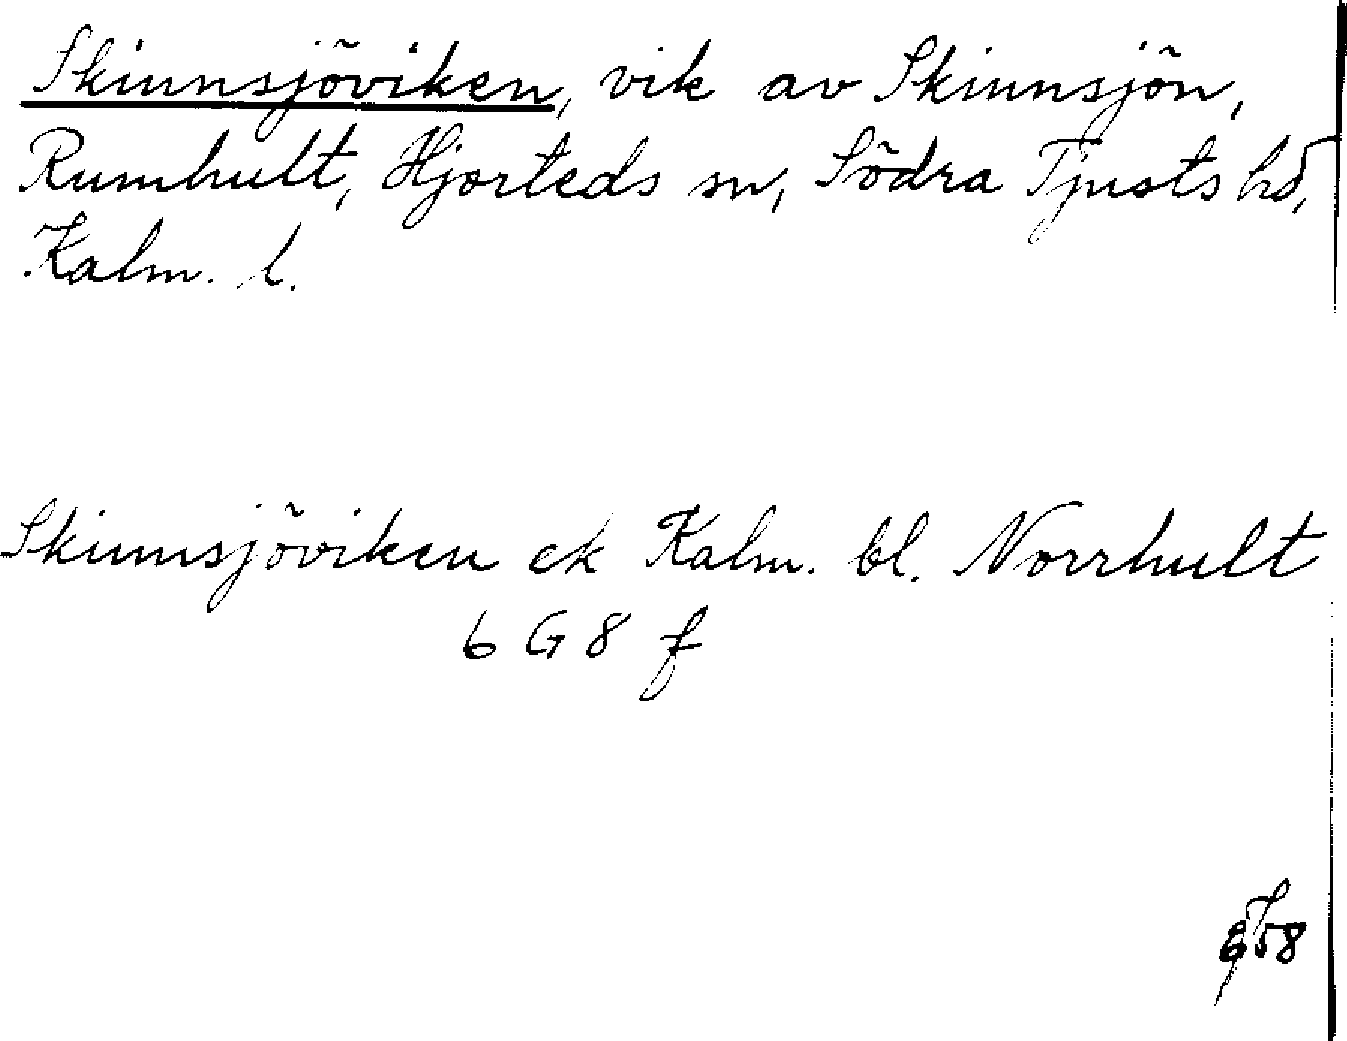 Skinnsjöviken, vik av Skinnsjön,
Rumhult, Hjorteds sn, Södra Tjusts hd,
Kalm. l.
Skinnsjöviken ek Kalm. bl. Norrhult
6 G 8 f